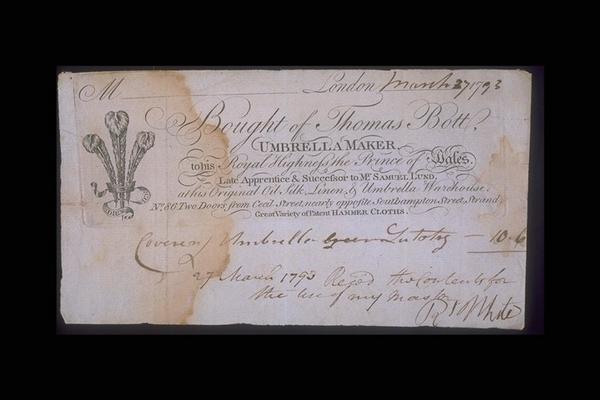 M London March 27 1793
Bought of Thomas Bott,
UMBRELLA MAKER,
to his Royal Highness the Prince of Wales,
Late Apprentice & Successor to Mr. SAMUEL LUND,
at his Original Oil Silk, Linen, & Umbrella Warehouse.
No. 86 Two Doors from Cecil Street, nearly opposite Southampton Street, Strand,
Great Variety of Patent HAMMER CLOTHS.
Covering Umbrella - 10-6
27 March 1793 Reced the Contents for
the use of my Master
White